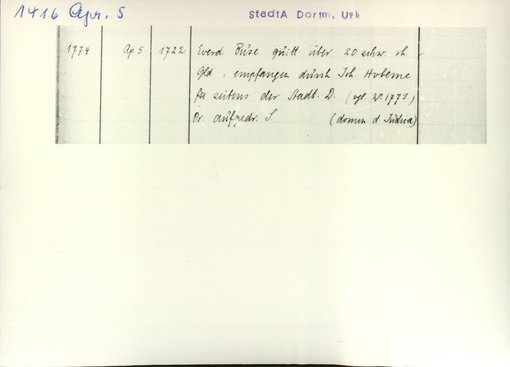 1416 Apr. 5
StadtA Dortm. Urk
1774 Ap 5 1722 Everd Büse quitt. über 20 schw. rh
Gld, empfangen durch Joh. Hovene
seitens der Stadt D. (vgl. Nr. 1773.)
Or aufgedr. S. (domin. d. Judica)